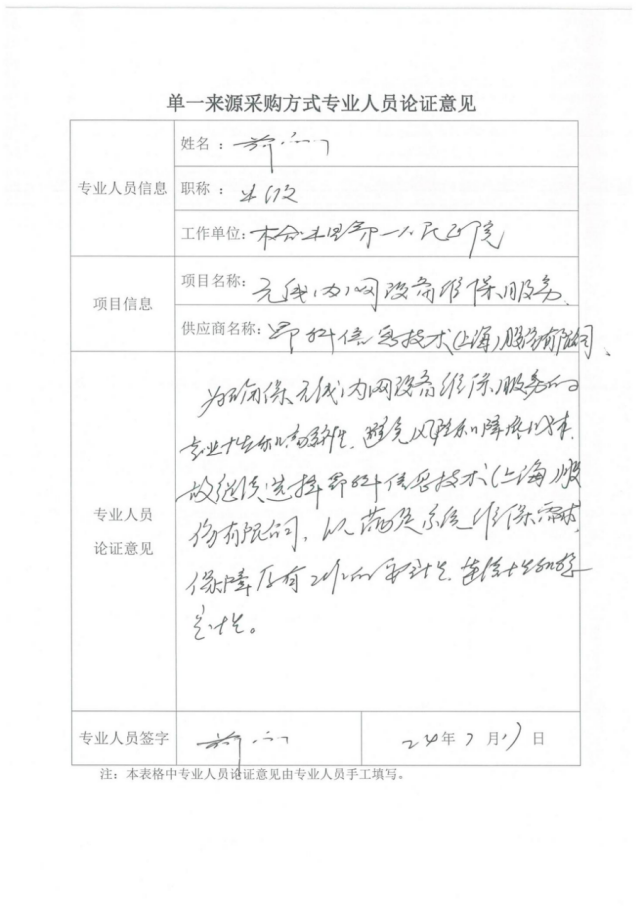 单一来源采购方式专业人员论证意见
专业人员信息
姓名：
职称：
工作单位: 第一人民医院
项目信息
项目名称: 无线内网设备维保服务
供应商名称: 昂科信息技术(上海)股份有限公司
专业人员
论证意见
为确保无线内网设备维保服务的
专业性和高效性,避免风险和降低成本,
故继续选择昂科信息技术(上海)股
份有限公司,以满足系统维保需求,
保障原有工作的 性、连续性和稳
定性。
专业人员签字
24年7月17日
注：本表格中专业人员论证意见由专业人员手工填写。